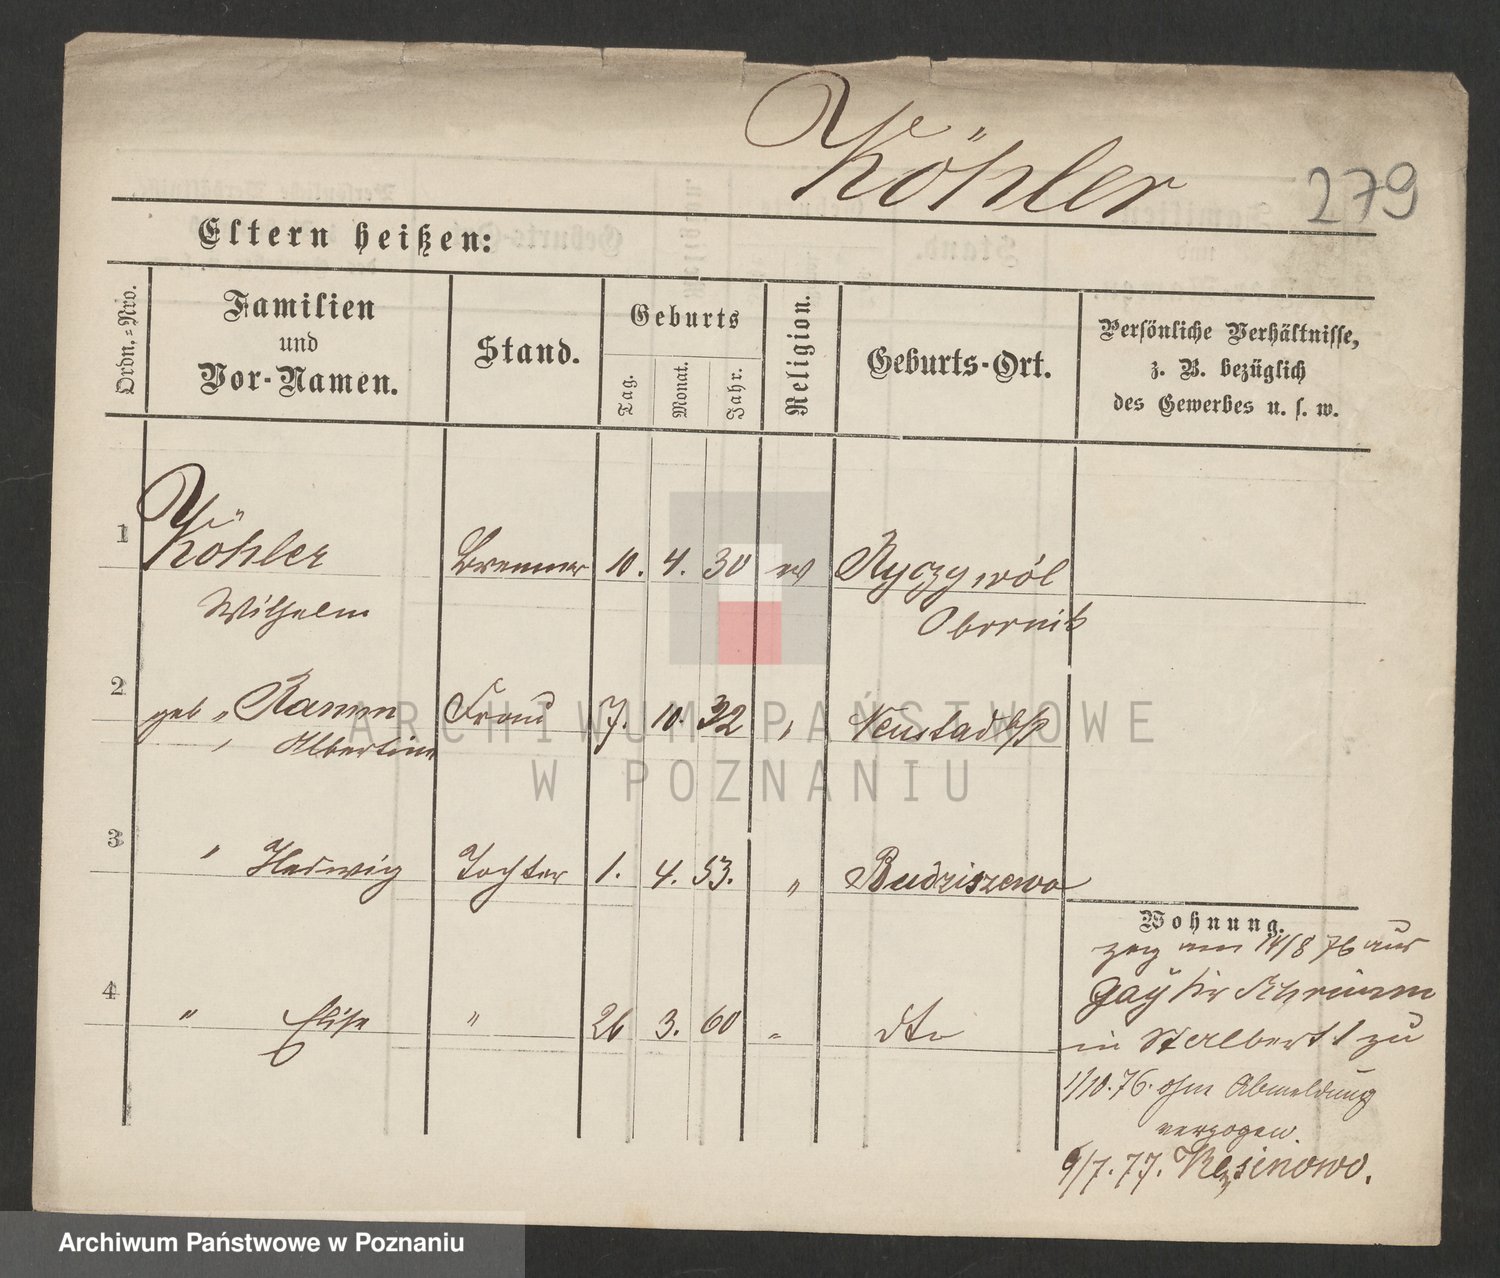 Köhler
279
Eltern heißen:
Ordn.=Nro.
Familien
und
Vor-Namen.
Stand.
Geburts
Tag.
Monat.
Jahr.
Religion.
Geburts-Ort.
Persönliche Verhältnisse,
z. B. bezüglich
des Gewerbes u. s. w.
1 Köhler Brenner 10. 4. 30 ev Ryczywól
Wilhelm Obornik
2 geb „ Frau 7. 10. 32 „ Neustadt b/P
„ Albertine
3 „ Hedwig Tochter 1. 4. 53. „ Budziszewo
Wohnung.
zog am 14/8 76 aus
4 „ Elise „ 26 3. 60 „ dto
Gay Kr Schrimm
in St Albert 1 zu
1/10.76. ohne Abmeldung
verzogen.
9/7.77.
ARCHIWUM PAŃSTWOWE
W POZNANIU
Archiwum Państwowe w Poznaniu